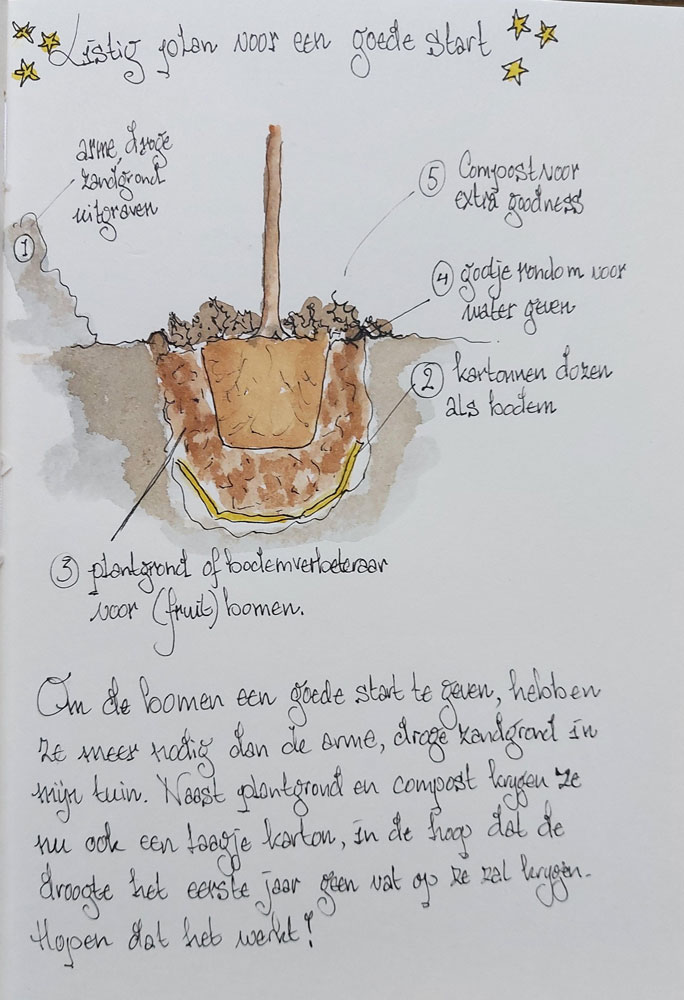 Listig plan voor een goede start
arme, droge
zandgrond
uitgraven
1
5 Compost voor
extra goodness
4 gootje rondom voor
water geven
2 kartonnen dozen
als bodem
3 plantgrond of bodemverbeteraar
voor (fruit)bomen.
Om de bomen een goede start te geven, hebben
ze meer nodig dan de arme, droge zandgrond in
mijn tuin. Naast plantgrond en compost krygen ze
nu ook een laagje karton, in de hoop dat de
droogte het eerste jaar geen vat op ze zal krygen.
Hopen dat het werkt!